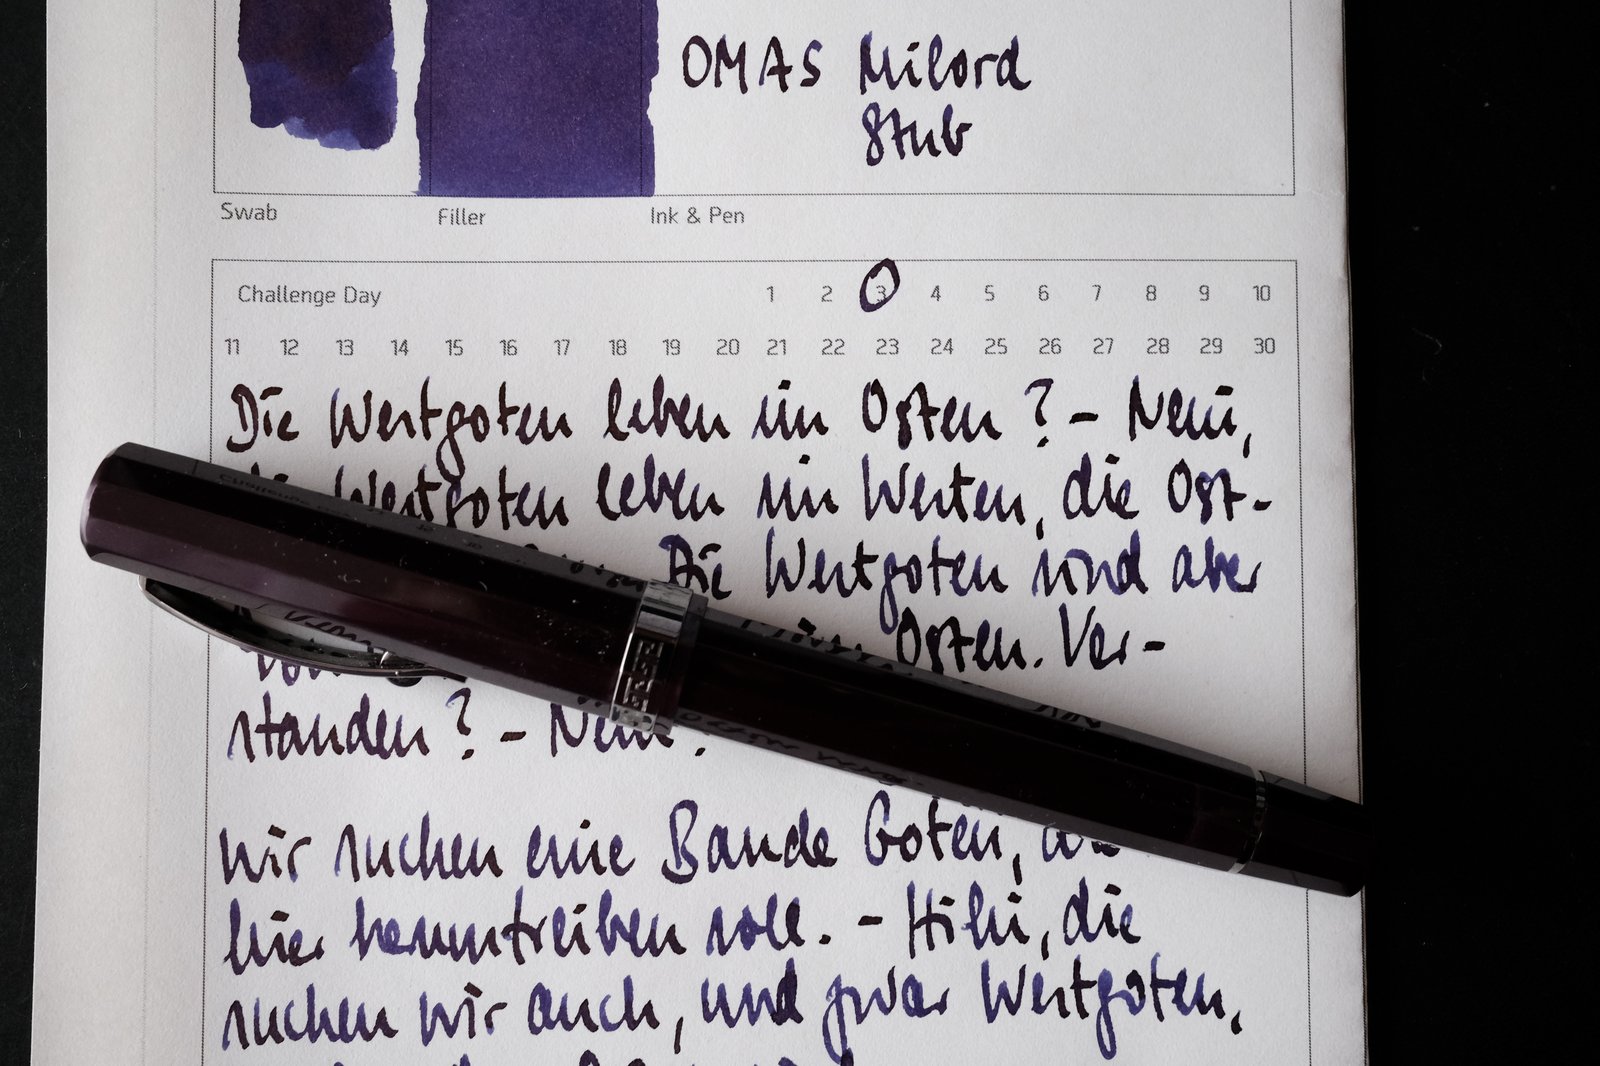 OMAS Milord
Stub
Swab Filler Ink & Pen
Challenge Day 1 2 3 4 5 6 7 8 9 10
11 12 13 14 15 16 17 18 19 20 21 22 23 24 25 26 27 28 29 30
Die Westgoten leben im Osten? - Nein,
die Westgoten leben im Westen, die Ost-
Die Westgoten sind aber
Osten. Ver-
standen? - Nein.
Wir suchen eine Bande Goten, die
hier herumtreiben soll. - Hihi, die
suchen wir auch, und zwar Westgoten.